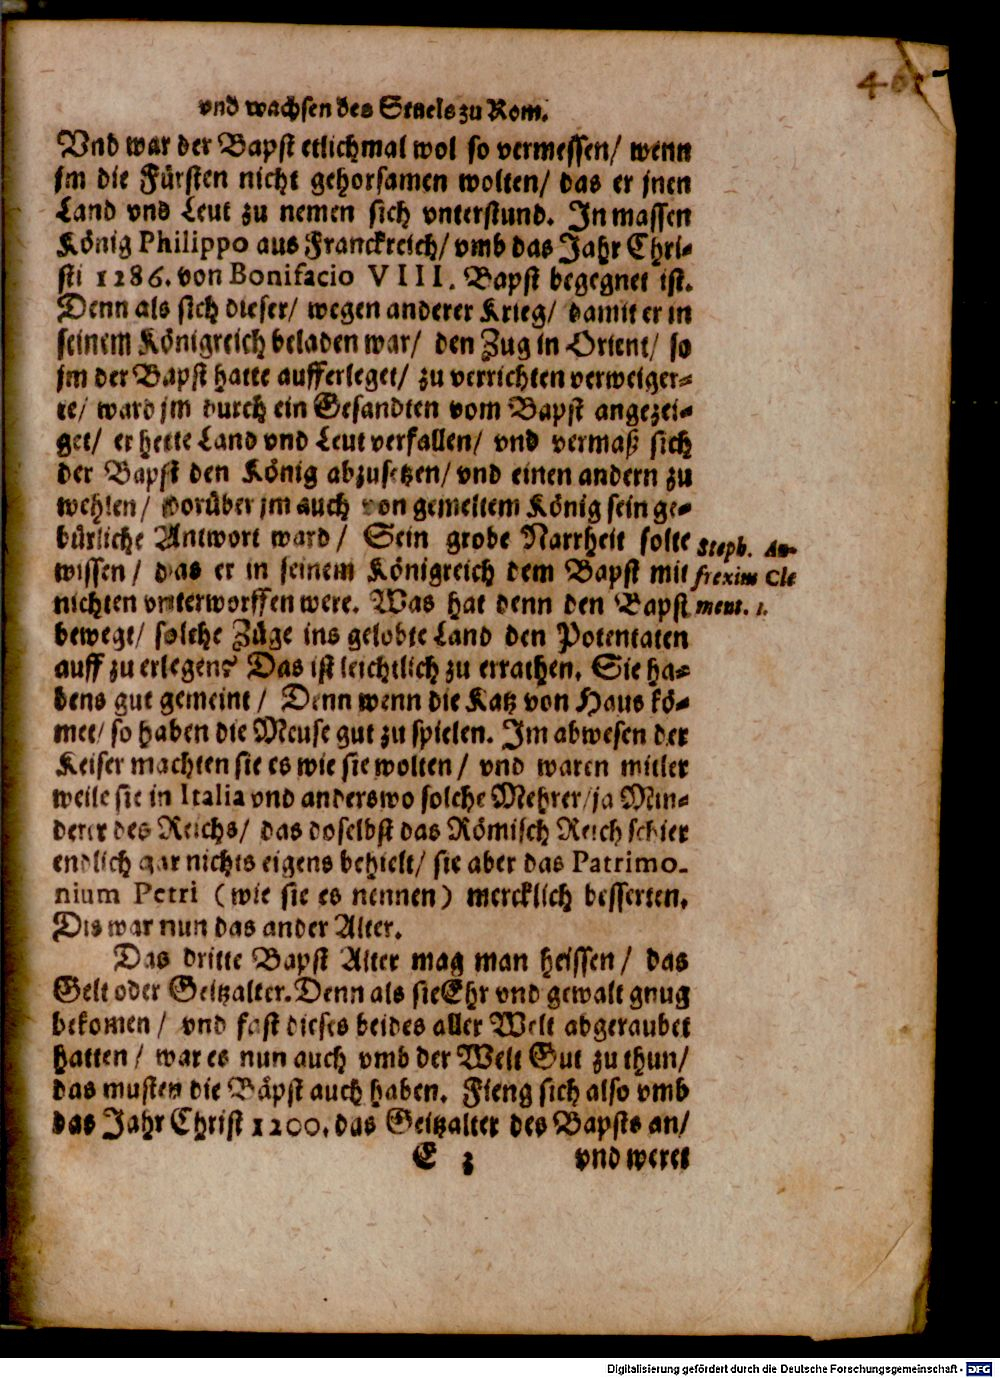 vnd wachsen des Stuels zu Rom.
Vnd war der Bapst etlichmal wol so vermessen/ wenn
jm die Fürsten nicht gehorsamen wolten/ das er jnen
Land vnd Leut zu nemen sich vnterstund. In massen
König Philippo aus Franckreich/ vmb das Jahr Chri-
sti 1286. von Bonifacio VIII. Bapst begegnet ist.
Denn als sich dieser/ wegen anderer Krieg/ damit er in
seinem Königreich beladen war/ den Zug in Orient/ so
jm der Bapst hatte aufferleget/ zu verrichten verweiger-
te/ ward jm durch ein Gesandten vom Bapst angezei-
get/ er hette Land vnd Leut verfallen/ vnd vermaß sich
der Bapst den König abzusetzen/ vnd einen andern zu
wehlen/ dorüber jm auch von gemeltem König sein ge-
bürliche Antwort ward/ Sein grobe Narrheit solte
wissen/ das er in seinem Königreich dem Bapst mit
nichten vnterworffen were. Was hat denn den Bapst
bewegt/ solche Züge ins gelobte Land den Potentaten
auff zu erlegen? Das ist leichtlich zu errathen. Sie ha-
bens gut gemeint/ Denn wenn die Katz von Haus kö-
met/ so haben die Meuse gut zu spielen. Im abwesen der
Keiser machten sie es wie sie wolten/ vnd waren mitler
weile sie in Italia vnd anderswo solche Mehrer/ ja Min-
derer des Reichs/ das doselbst das Römisch Reich schier
endlich gar nichts eigens behielt/ sie aber das Patrimo-
nium Petri (wie sie es nennen) mercklich besserten.
Dis war nun das ander Alter.
Das dritte Bapst Alter mag man heissen/ das
Gelt oder Geitzalter. Denn als sie Ehr vnd gewalt gnug
bekomen/ vnd fast dieses beides aller Welt abgeraubet
hatten/ war es nun auch vmb der Welt Gut zu thun/
das musten die Bäpst auch haben. Fieng sich also vmb
das Jahr Christ 1200. das Geitzalter des Bapsts an/
E 3 vnd weret
Steph. Au-
frexim Cle
ment. 1.
Digitalisierung gefördert durch die Deutsche Forschungsgemeinschaft - DFG